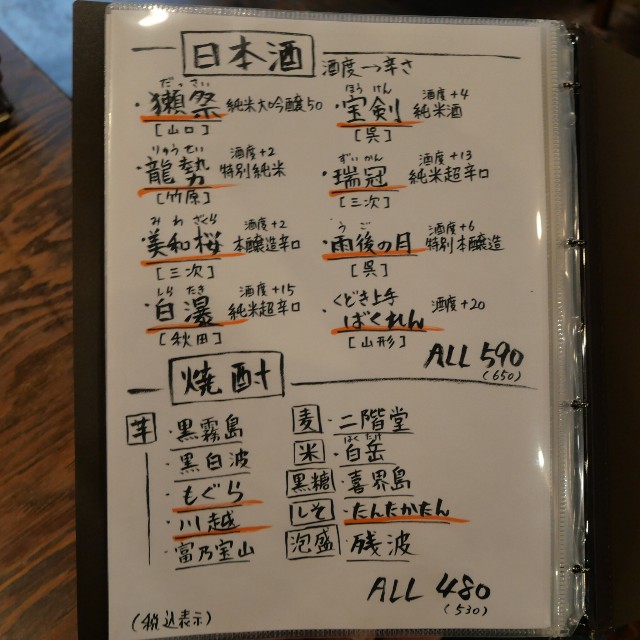 日本酒 酒度→辛さ
だっさい
・獺祭 純米大吟醸50
[山口]
ほうけん
・宝剣 酒度+4 純米酒
[呉]
りゅうせい
・龍勢 酒度+2 特別純米
[竹原]
ずいかん
・瑞冠 酒度+13 純米超辛口
[三次]
みわざくら
・美和桜 酒度+2 本醸造辛口
[三次]
うご
・雨後の月 酒度+6 特別本醸造
[呉]
しらたき
・白瀑 酒度+15 純米超辛口
[秋田]
くどき上手
・ばくれん 酒度+20
[山形]
ALL 590
(650)
焼酎
芋
・黒霧島
・黒白波
・もぐら
・川越
・富乃宝山
麦・二階堂
はくたけ
米・白岳
黒糖・喜界島
しそ・たんたかたん
泡盛・残波
ALL 480
(530)
(税込表示)